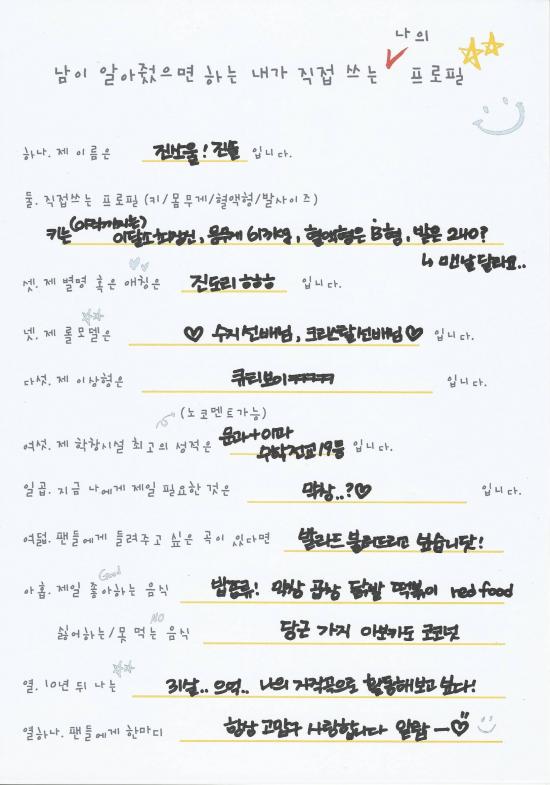 나의
남이 알아줬으면 하는 내가 직접 쓰는 프로필
하나. 제 이름은 진소울! 진솔 입니다.
둘. 직접쓰는 프로필 (키/몸무게/혈액형/발사이즈)
키는 이달소 최장신, 몸무게 비타민, 혈액형은 B형, 발은 240?
↳ 맨날 달라요..
셋. 제 별명 혹은 애칭은 진도리 ㅎㅎㅎ 입니다.
넷. 제 롤모델은 ♡ 수지선배님, 크리스탈선배님 ♡ 입니다.
다섯. 제 이상형은 큐티보이ㅋㅋㅋㅋ 입니다.
(노코멘트가능)
여섯. 제 학창시절 최고의 성적은 문과+이과 수학 전교 19등 입니다.
일곱. 지금 나에게 제일 필요한 것은 막창..?♡ 입니다.
여덟. 팬들에게 들려주고 싶은 곡이 있다면 발라드 불러드리고 싶습니닷!
Good
아홉. 제일 좋아하는 음식 밥종류! 막창 곱창 닭발 떡볶이 red food
NO
싫어하는/못 먹는 음식 당근 가지 아보카도 코코넛
열. 10년 뒤 나는 31살.. 으억.. 나의 자작곡으로 활동해보고 싶다!
열하나. 팬들에게 한마디 항상 고맙구 사랑합니다